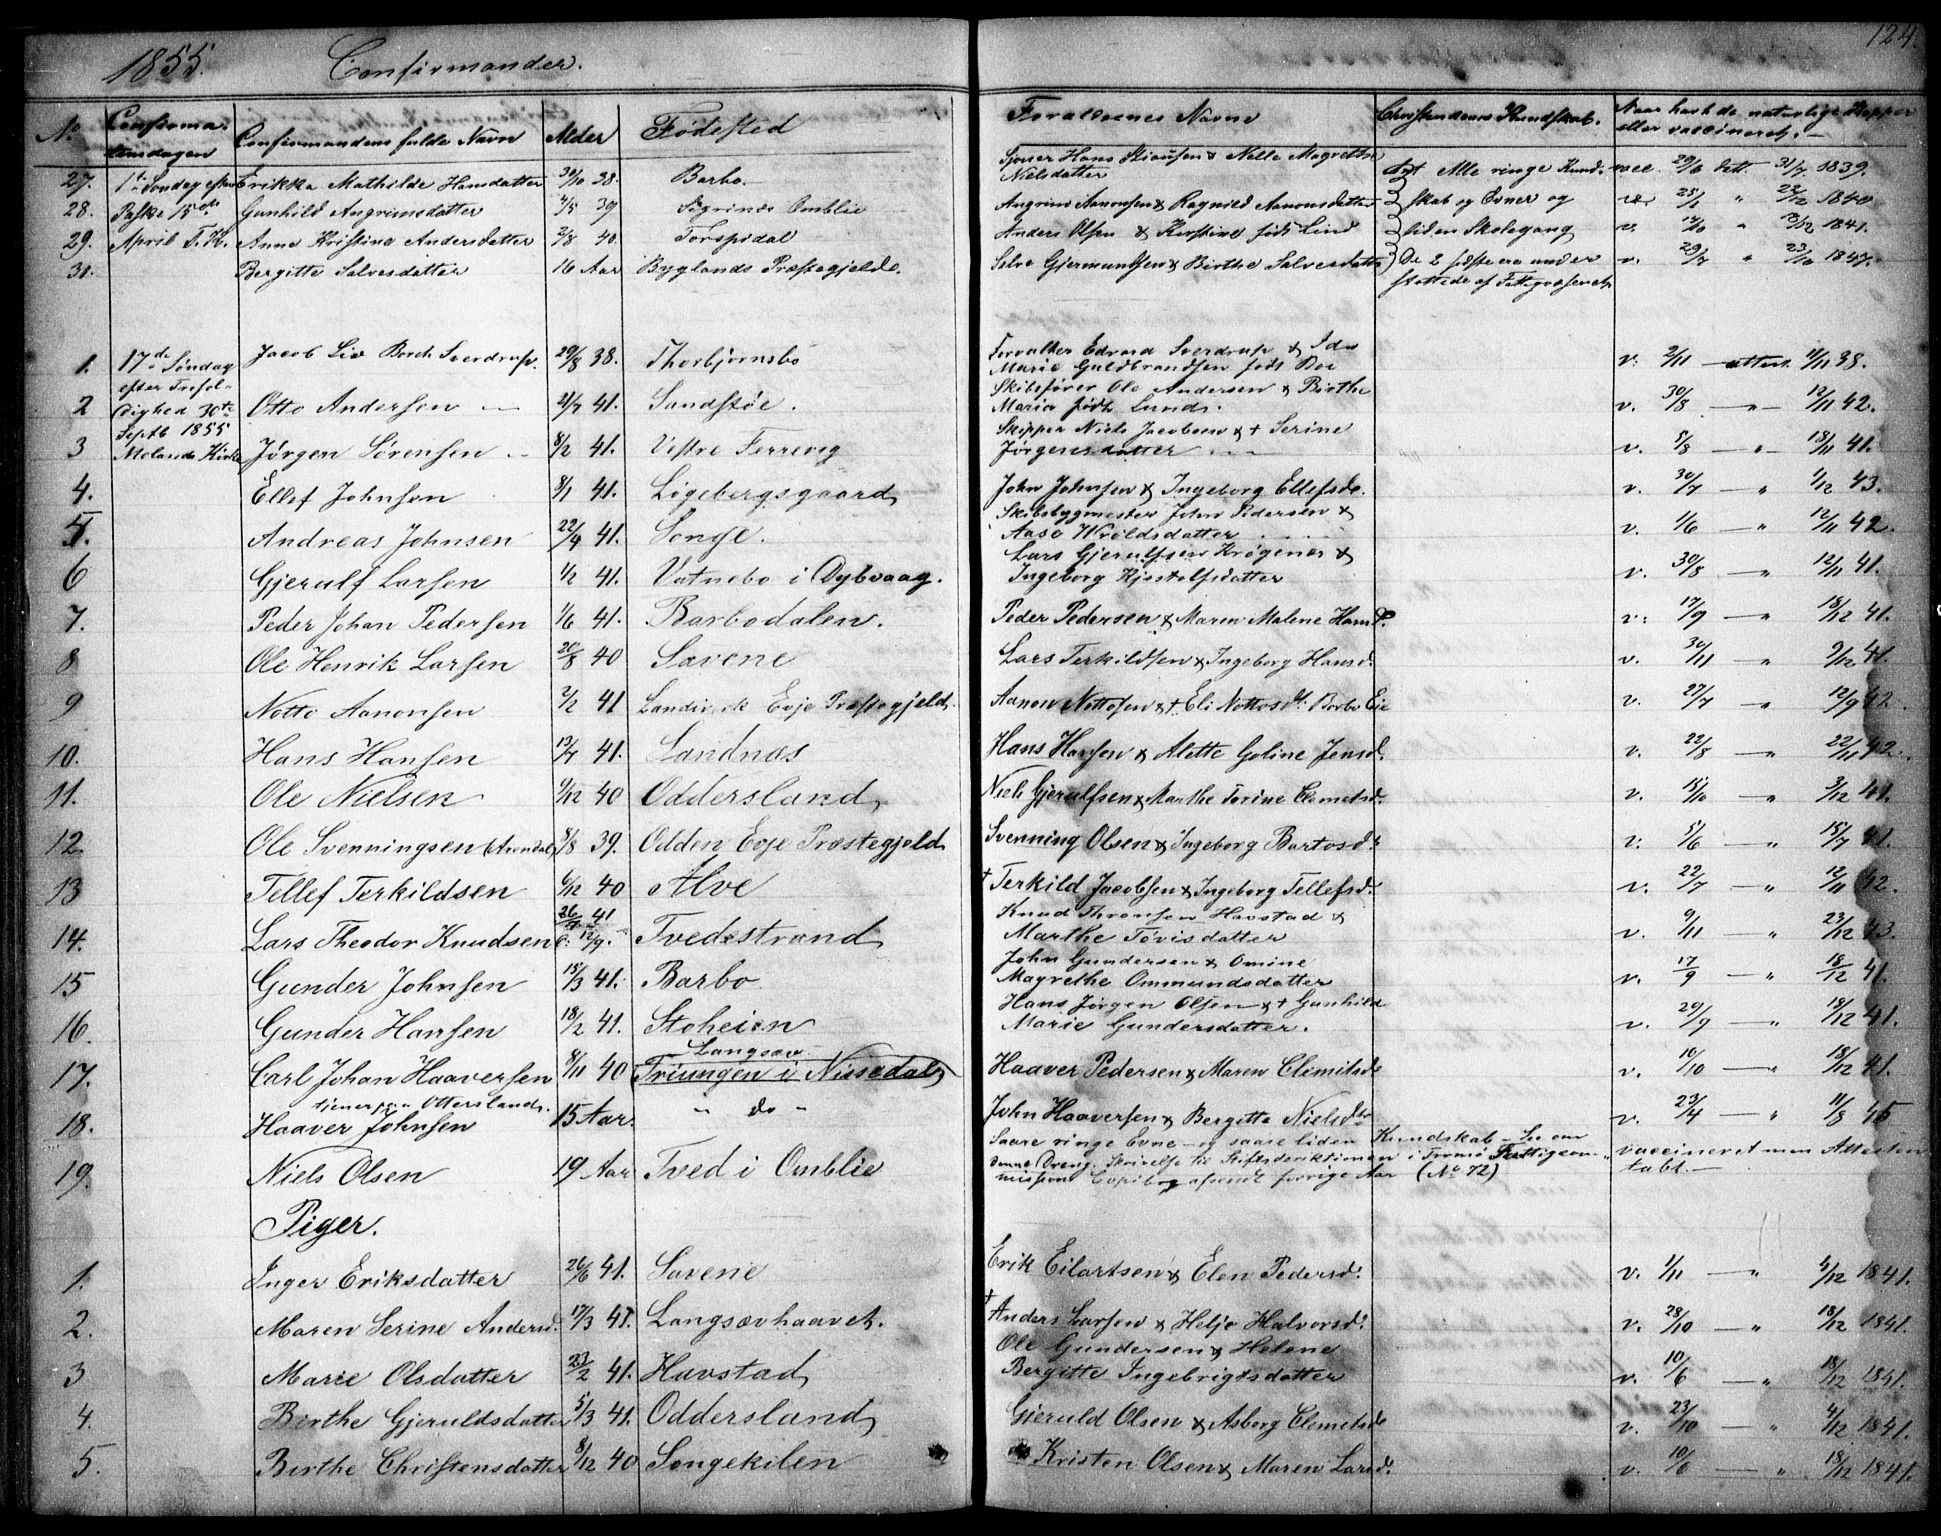 124.
1855. Confirmander.
No Confirma- tionsdagen Confirmandens fulde Navn Alder Fødested Forældrenes Navne Christendoms Kundskab. Naar havt de naturlige Kopper eller vaccineret.
27. 1ste Søndag efter Erikka Mathilde Hansdatter 30/10 38. Barbo. Hans & Nille Magrethe Nielsdatter Alle ringe Kund- vacc. 29/6 att. 31/7 1839.
28. Paske 15de Gunhild Angrimsdatter 4/5 39 Omblie Angrim Aanonsen & Ragnild Aanonsdatter skab og Evner og 25/1 " 22/12 1840
29. April Anne Kristine Andersdatter 2/8 40. Torspidal Anders Olsen & Kirstine født Lind liden Skolegang v. 14/10 " 1841.
31. Bergitte Salvesdatter 16 Aar Byglands Præstegjelde. Salve Gjermundsen & Birthe Salvesdatter De 2 sidste ere under v. 29/7 " 23/10 1847.
støttede af Fattigvæsenet
1. 17de Søndag Jacob Liv Borch Sverdrup. 29/8 38. Thorbjørnsbo Forvalter Edvard Sverdrup & Ida Marie Guldbrandsen født v. 2/11 — attest. 11/11 38.
2 efter Trefol- dighed 30te Otto Andersen 21/7 41. Sandstøe. Skibsfører Ole Andersen & Birthe Maria født Lund. v. 30/8 — " — 12/11 42.
3 Septb 1855 Molands Kirke Jørgen Sørensen 8/2 41. Vestre Ferrevig Skipper Niels Jacobsen & † Serine Jørgensdatter v. 5/8 — " — 18/11 41.
4. Ellef Johnsen 8/1 41. Løgebergsgaard John Johnsen & Ingeborg Ellefsdr. v. 30/7 — " 1/12 43.
5. Andreas Johnsen 22/4 41. Songe. Skibsbygmester John Pedersen & Aase Wroldsdatter v. 1/6 — " 12/11 42.
6 Gjerulf Larsen 1/2 41. Vatnebo i Dybvaag. Lars Gjerulfsen Krøgenes & Ingeborg Kjøstolfsdatter v. 30/8 — " 12/11 41.
7. Peder Johan Pedersen 1/6 41. Barbodalen. Peder Pedersen & Maren Malene Hansd. v. 17/9 — " 18/12 41.
8 Ole Henrik Larsen 20/8 40 Savene Lars Terkildsen & Ingeborg Hansd. v. 30/11 " 9/12 41.
9 Notto Aanonsen 2/2 41 Evje Præstegjeld. Aanon Nottosen & † Eli Nottosdt. Barbo Eie v. 27/7 — " 12/9 42.
10. Hans Hansen 13/7 41. Sandnæs Hans Hansen & Alette Goline Jensd. v. 22/8 — " 22/11 42.
11. Ole Nielsen 9/12 40 Oddersland Niels Gjerulfsen & Marthe Torine Clemetsd. v. 15/10 — " 3/12 41.
12. Ole Svenningsen (Arendal) 8/8 39. Odden Evje Præstegjeld Svenning Olsen & Ingeborg Bartosd. v. 5/6 — " 15/7 41.
13 Tellef Terkildsen 6/12 40 Alve † Terkild Jacobsen & Ingeborg Tellefsd. v. 22/7 — " 12/11 42.
14. Lars Theodor Knudsen 26/7 41. 12/9. Tvedestrand Knud Thronsen Havstad & Marthe Tovisdatter v. 9/11 — " 23/12 43.
15 Gunder Johnsen 15/3 41. Barbo John Gundersen & Omine Magrethe Ommundsdatter v. 17/9 — " 18/12 41.
16. Gunder Hansen 18/2 41. Stoheien Hans Jørgen Olsen & † Gunhild Marie Gundersdatter. v. 29/9 — " 18/12 41.
17. Carl Johan Haaversen 8/11 40 Langsæv Triungen i Nissedal Haaver Pedersen & Maren Clemitsdr v. 10/10 — " 18/12 41.
18. tjener paa Ottersland. Haaver Johnsen 15 Aar. " do " John Haaversen & Bergitte Nielsdtr v. 23/4 — " 11/8 45
19. Niels Olsen 19 Aar Tved i Omblie Saare ringe Evne — og saare liden Kundskab — Se om denne Dreng Skrivelse til Stiftsdirektionen i Tromø Fattigcom- mission Copibog afsendt forrige Aar (No 72) vaccineret men Attesten tabt. —
Piger.
1. Inger Eriksdatter 26/6 41. Savene Erik Eilartsen & Elen Pedersd. v. 1/11 — " 4/12 1841.
2. Maren Serine Andersd. 17/3 41. Langsævhaavet. † Anders Larsen & Helje Halvorsd. v. 28/10 — " 18/12 1841.
3 Marie Olsdatter 23/2 41. Havstad Ole Gundersen & Helene Bergitte Ingebrigtsdatter v. 10/6 — " 18/12 1841.
4. Birthe Gjeruldsdatter 5/3 41. Oddersland Gjeruld Olsen & Asborg Clemetsdr v. 23/10 — " 4/12 1841.
5. Birthe Christensdatter 8/12 40 Songekilen Kristen Olsen & Maren Larsd. v. 10/6 — " 18/12 1841.